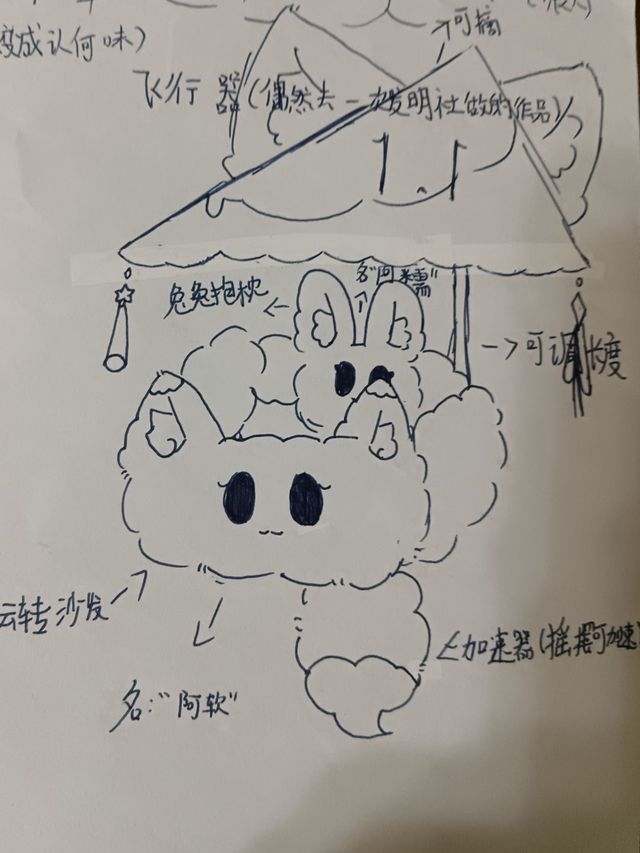 变成认何味)
可摘
飞行器(偶然去一次发明社做的作品)
兔兔抱枕
名"阿糯"
可调长度
云转沙发
加速器(摇摆可加速
名:"阿软"